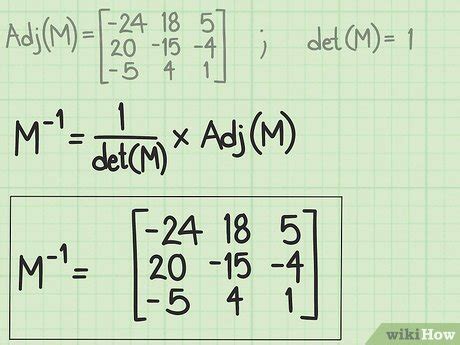 Adj(M) = [-24 18 5
20 -15 -4
-5 4 1] ; det(M) = 1
M⁻¹ = 1/det(M) × Adj(M)
M⁻¹ = [-24 18 5
20 -15 -4
-5 4 1]
wikiHow